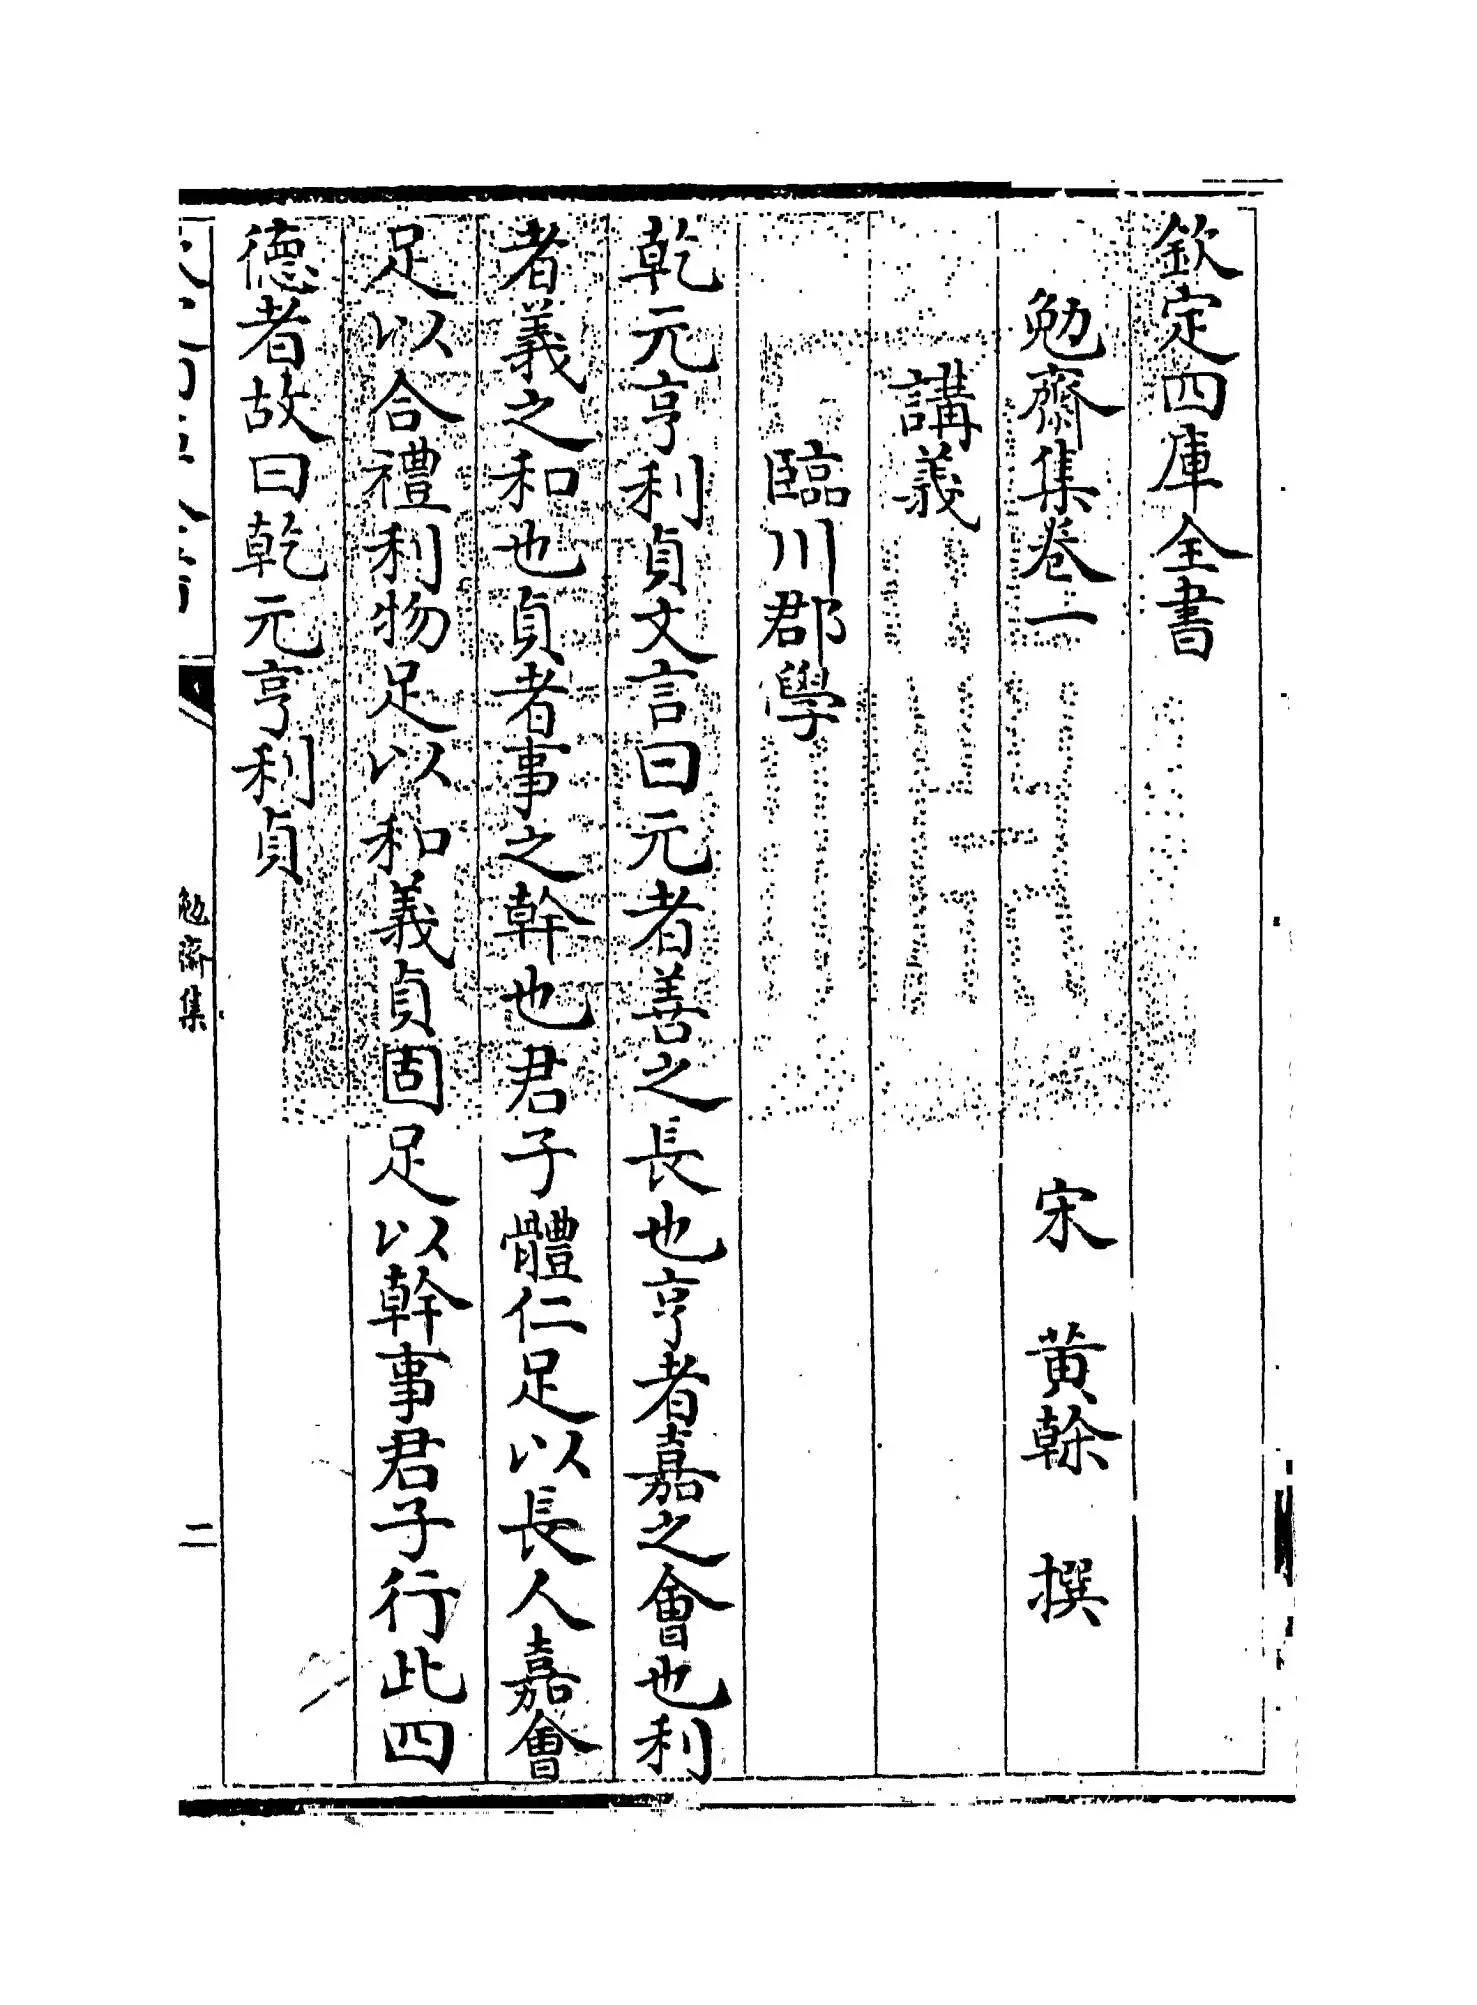 欽定四庫全書
勉齋集卷一　宋　黃榦　撰
講義
臨川郡學
乾元亨利貞文言曰元者善之長也亨者嘉之會也利
者義之和也貞者事之幹也君子體仁足以長人嘉會
足以合禮利物足以和義貞固足以幹事君子行此四
德者故曰乾元亨利貞
勉齋集
二